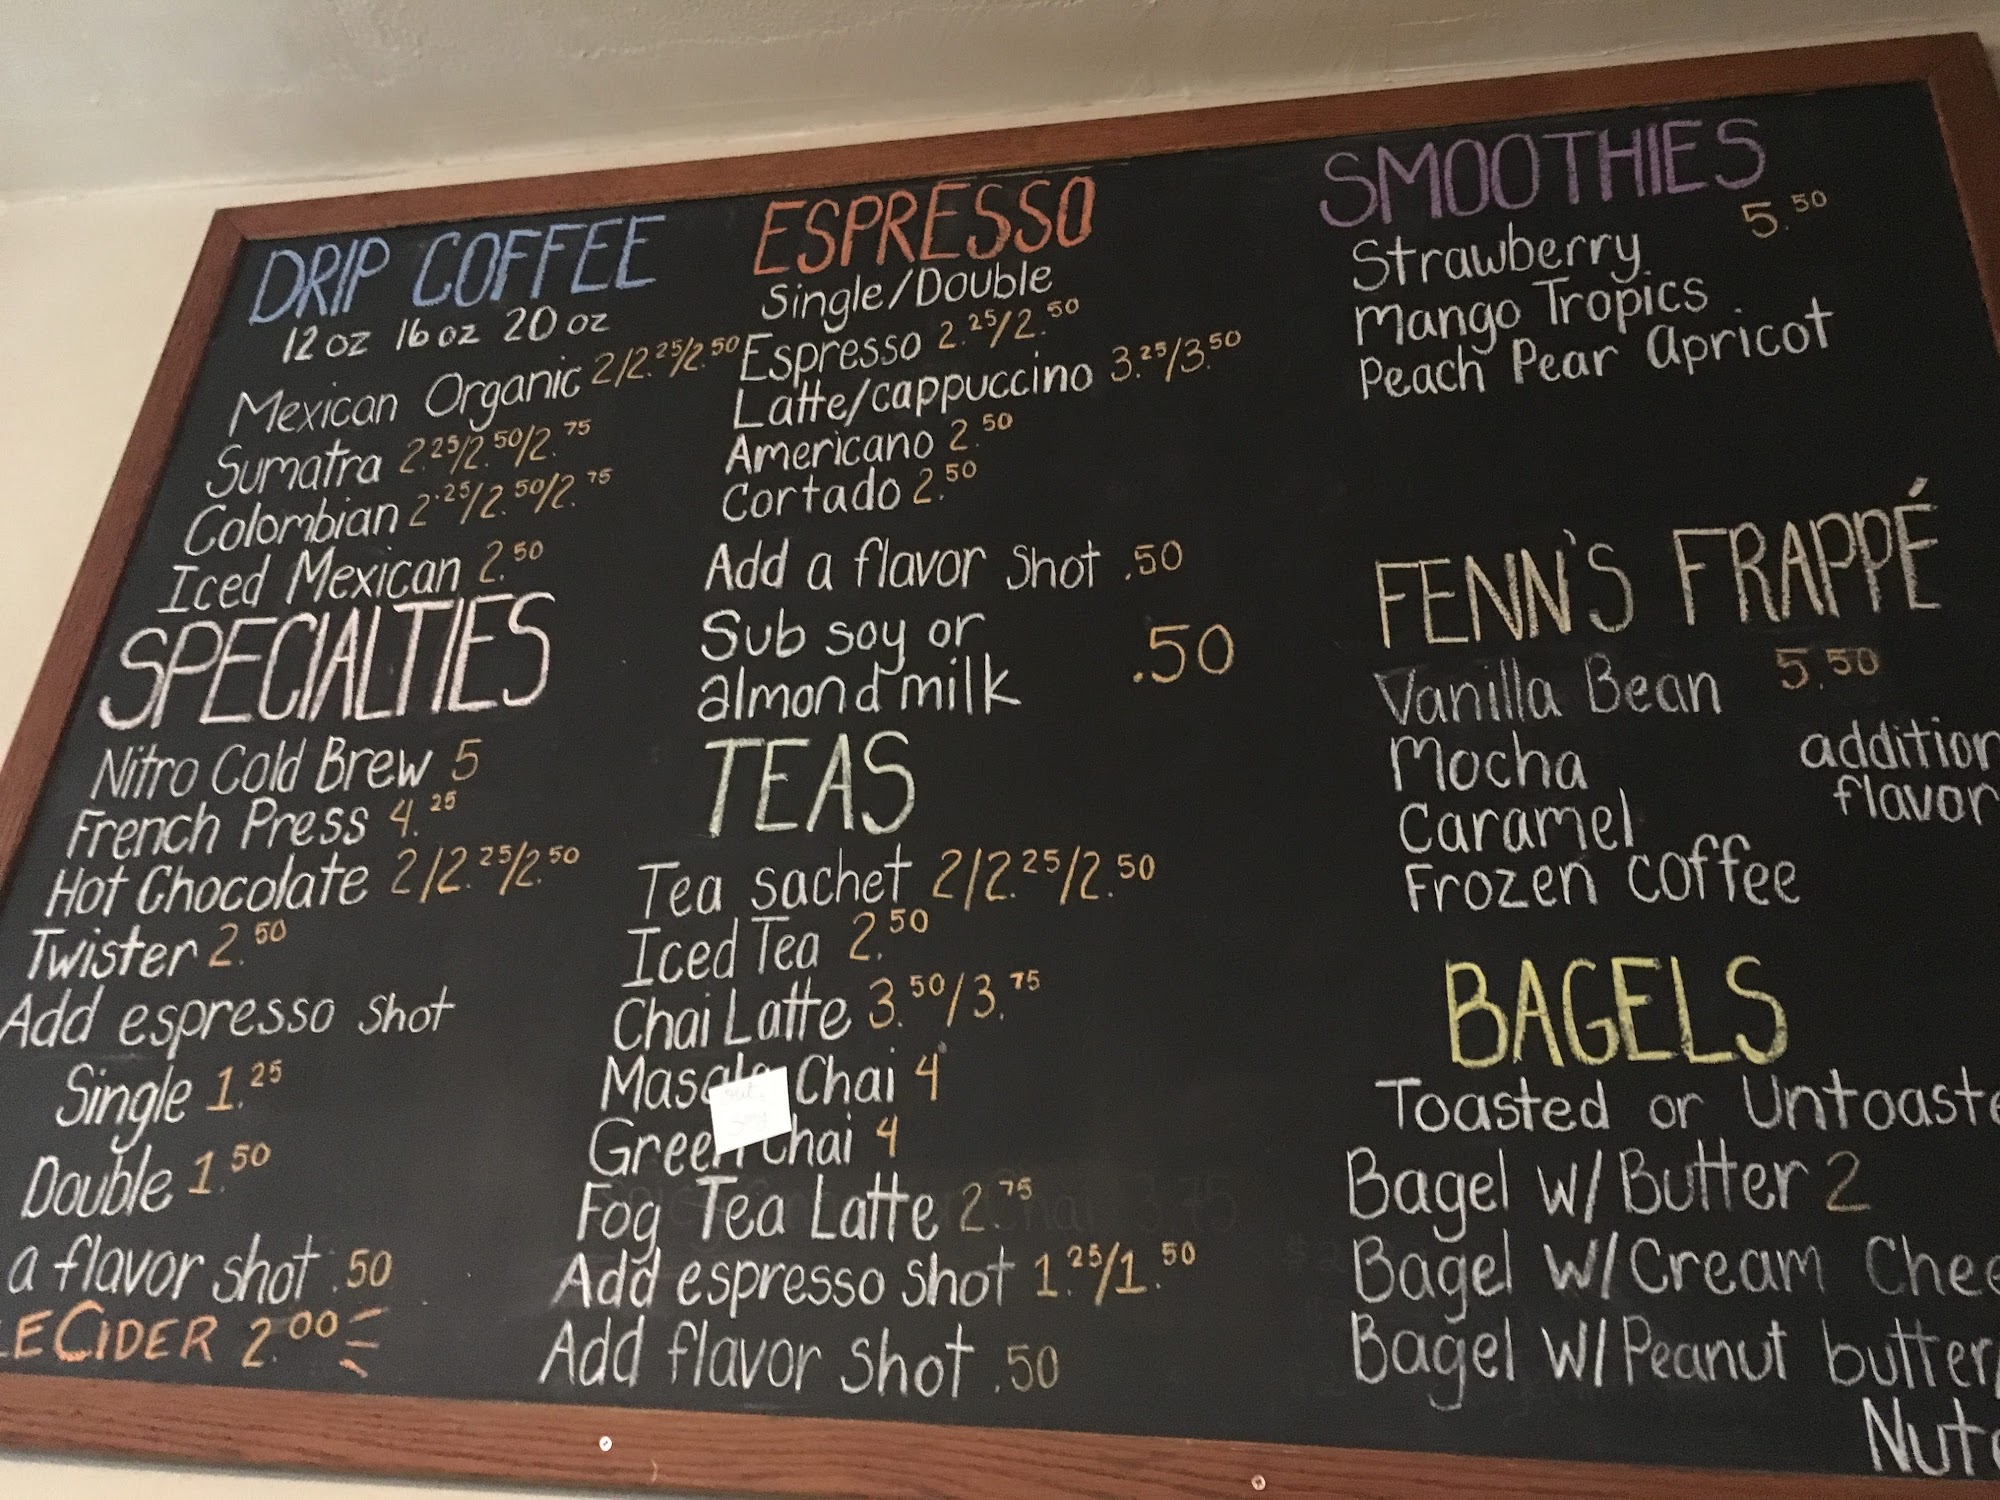 DRIP COFFEE
12 oz 16 oz 20 oz
Mexican Organic 2/2.25/2.50
Sumatra 2.25/2.50/2.75
Colombian 2.25/2.50/2.75
Iced Mexican 2.50
SPECIALTIES
Nitro Cold Brew 5
French Press 4.25
Hot Chocolate 2/2.25/2.50
Twister 2.50
Add espresso shot
Single 1.25
Double 1.50
a flavor shot .50
LE CIDER 2.00
ESPRESSO
Single/Double
Espresso 2.25/2.50
Latte/cappuccino 3.25/3.50
Americano 2.50
Cortado 2.50
Add a flavor shot .50
Sub soy or
almond milk .50
TEAS
Tea sachet 2/2.25/2.50
Iced Tea 2.50
Chai Latte 3.50/3.75
Masala Chai 4
Green Chai 4
Fog Tea Latte 2.75
Add espresso shot 1.25/1.50
Add flavor shot .50
SMOOTHIES
5.50
Strawberry
Mango Tropics
Peach Pear Apricot
FENN'S FRAPPÉ
Vanilla Bean 5.50
Mocha addition
Caramel flavor
Frozen coffee
BAGELS
Toasted or Untoaste
Bagel w/ Butter 2
Bagel w/ Cream Chee
Bagel w/ Peanut butter/
Nut